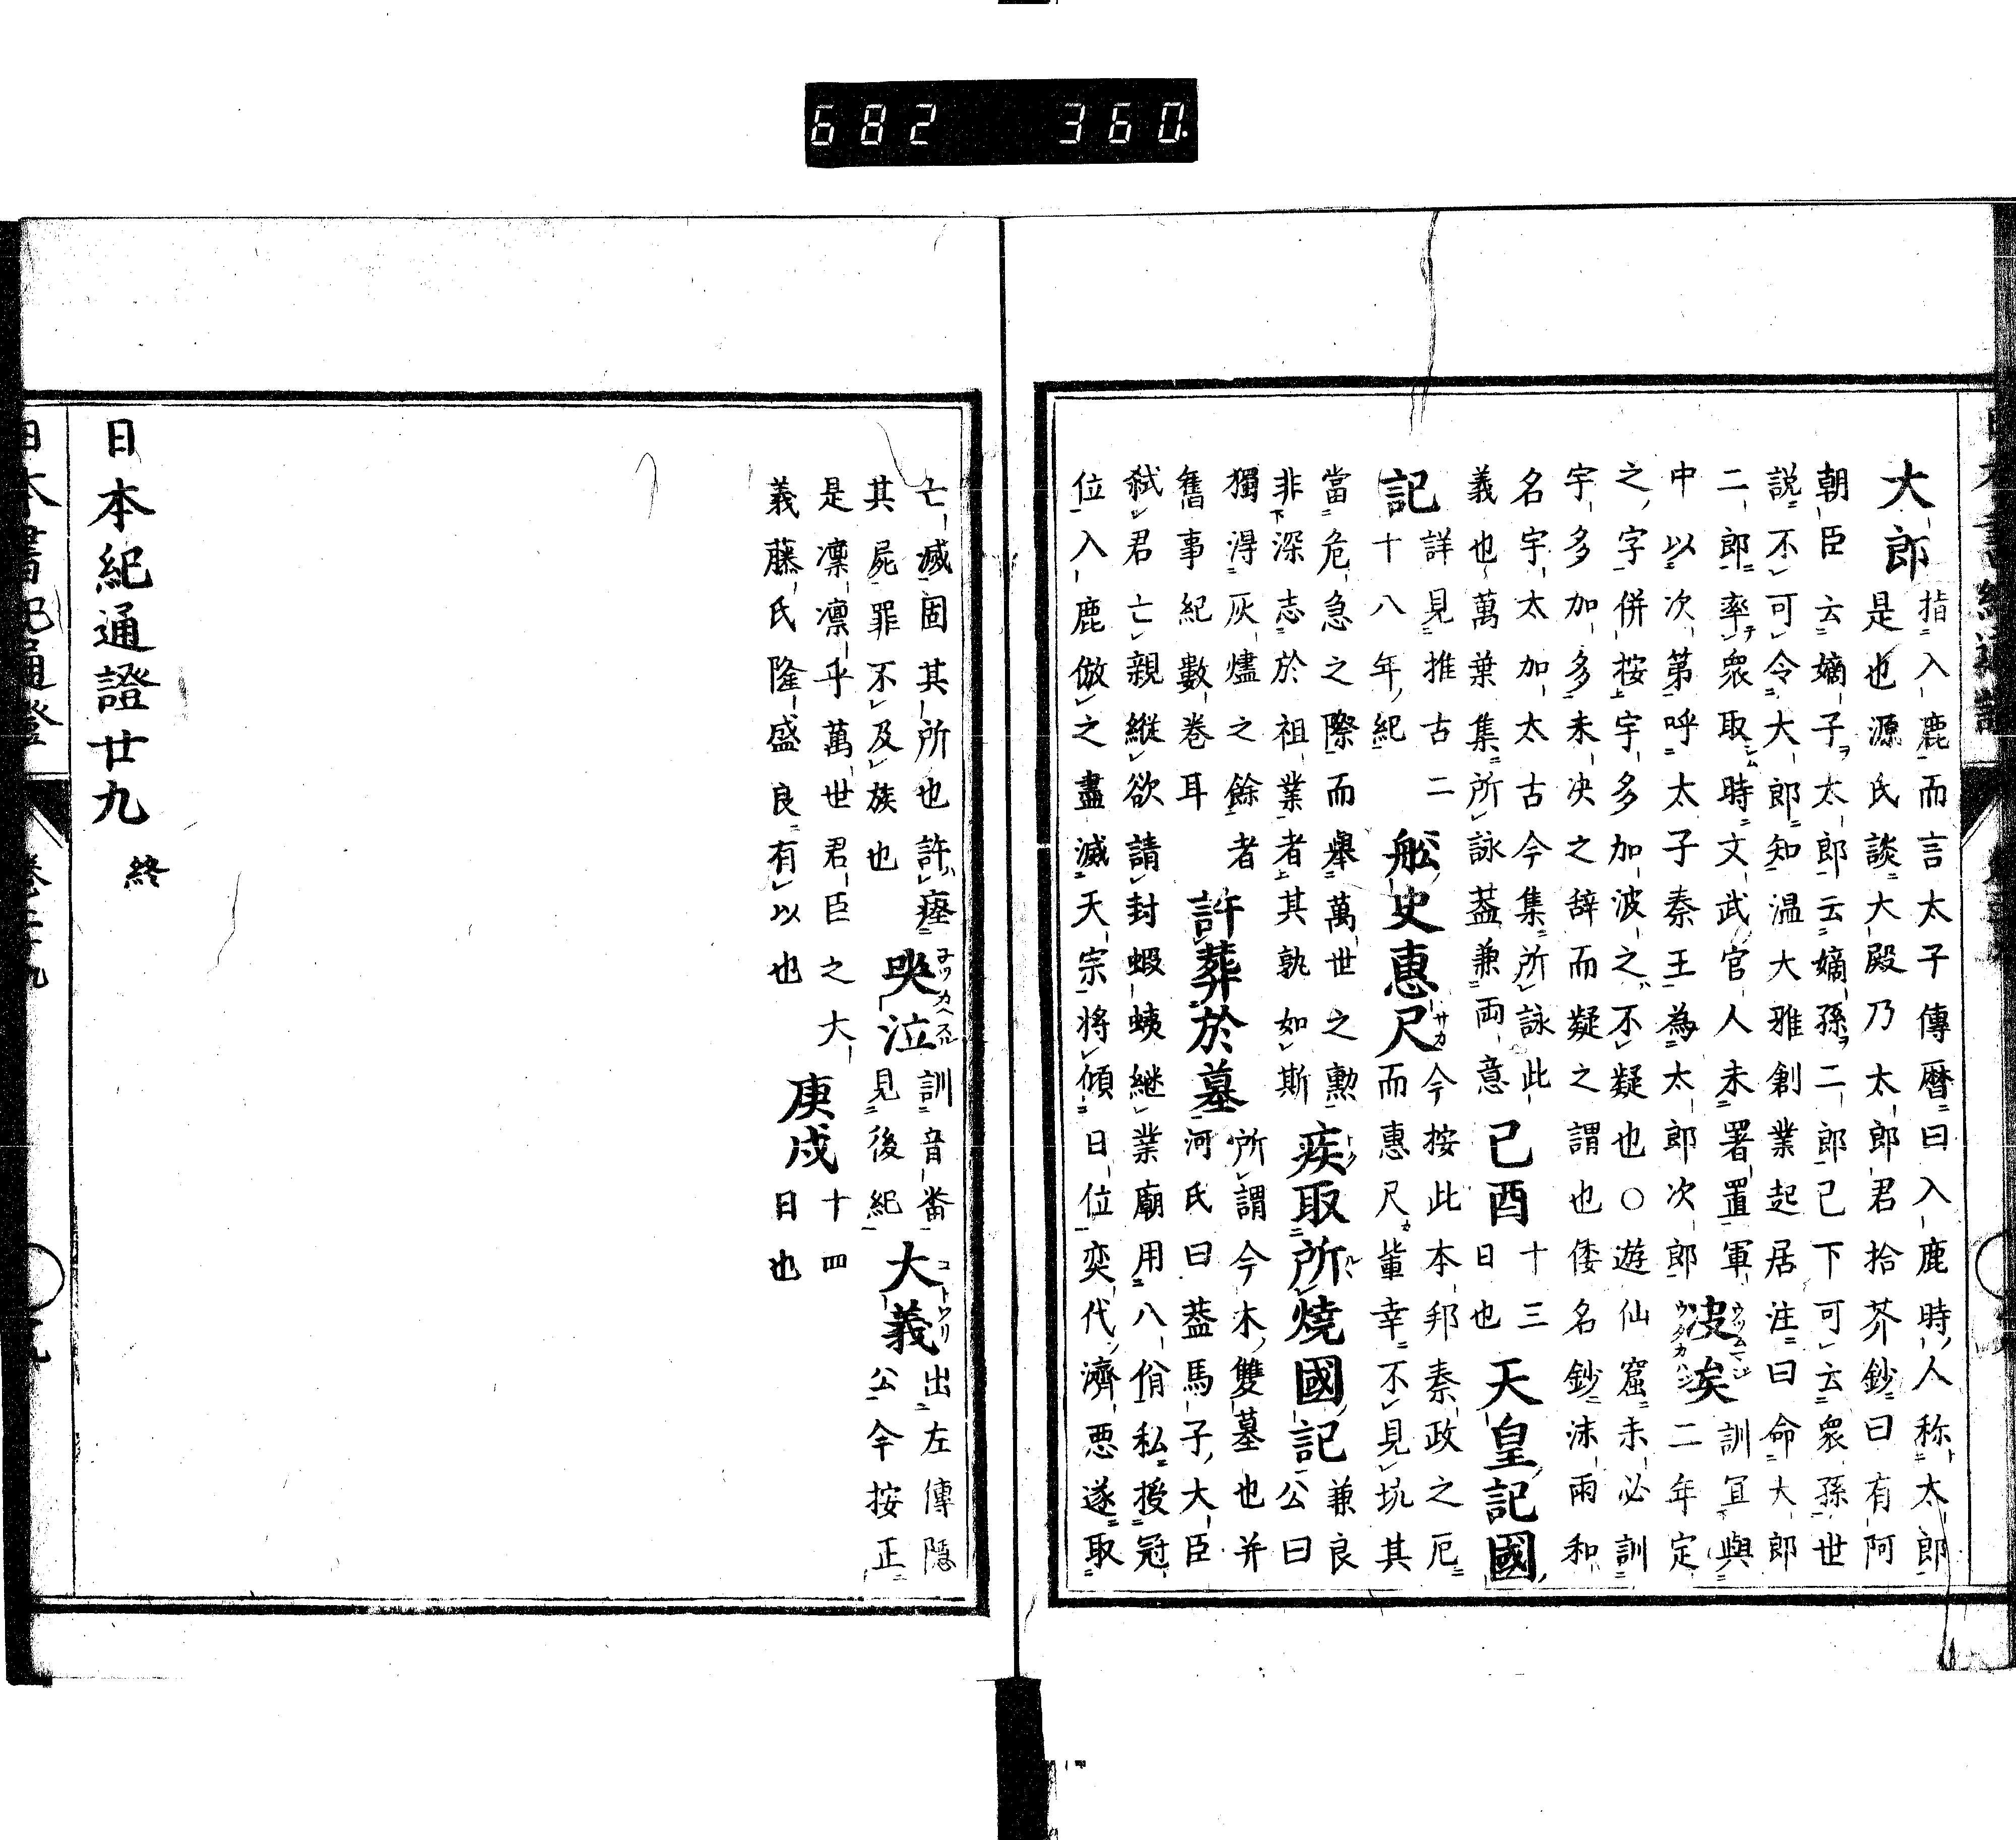 682 360.
大郎
指入鹿而言太子傳暦曰入鹿時人称太郎
是也源氏談大殿乃太郎君拾芥鈔曰有阿
朝臣云嫡子太郎云嫡孫二郎已下可云衆孫世
説不可令大郎知温大雅創業起居注曰命大郎
二郎率衆取時文武官人未署置軍
中以次第呼太子秦王為太郎次郎
訓宜與
二年定
之字併按宇多加波之不疑也〇遊仙窟未必訓
宇多加多未决之辞而疑之謂也倭名鈔沫雨和
名宇太加太古今集所詠此
義也萬葉集所詠葢兼兩意
己酉
十三
日也
天皇記國
記
詳見推古二
十八年紀
舩史惠尺
今按此本邦秦政之厄
而惠尺輩幸不見坑其
當危急之際而舉萬世之勲
非深志於祖業者其孰如斯
疾取所燒國記
兼良
公曰
獨得灰燼之餘者
舊事紀數巻耳
許葬於墓
所謂今木雙墓也并
河氏曰葢馬子大臣
弑君亡親縱欲請封蝦蛦継業廟用八佾私授冠
位入鹿倣之盡滅天宗將傾日位奕代濟悪遂取
亡滅固其所也許瘞
其屍罪不及族也
哭泣
訓音畨
見後紀
大義
出左傳隱
公今按正
是凛凛乎萬世君臣之大
義藤氏隆盛良有以也
庚戌
十四
日也
日本紀通證廿九 終